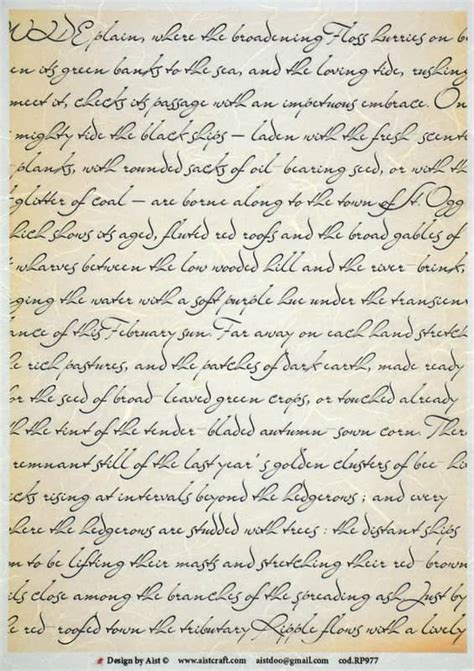 WIDE plain, where the broadening Floss hurries on b
en its green banks to the sea, and the loving tide, rushing
meet it, checks its passage with an impetuous embrace. On
mighty tide the black ships – laden with the fresh-scente
planks, with rounded sacks of oil-bearing seed, or with th
glitter of coal – are borne along to the town of St. Ogg
hich shows its aged, fluted red roofs and the broad gables of
wharves between the low wooded hill and the river-brink,
ging the water with a soft purple hue under the transien
ance of this February sun. Far away on each hand stretch
e rich pastures, and the patches of dark earth, made ready
or the seed of broad-leaved green crops, or touched already
h the tint of the tender-bladed autumn-sown corn. There
remnant still of the last year's golden clusters of bee-hi
cks rising at intervals beyond the hedgerows; and every
here the hedgerows are studded with trees: the distant ships
m to be lifting their masts and stretching their red-brown
ils close among the branches of the spreading ash. Just by
e red-roofed town the tributary Ripple flows with a lively
Design by Aist © www.aistcraft.com aistdoo@gmail.com cod.RP977